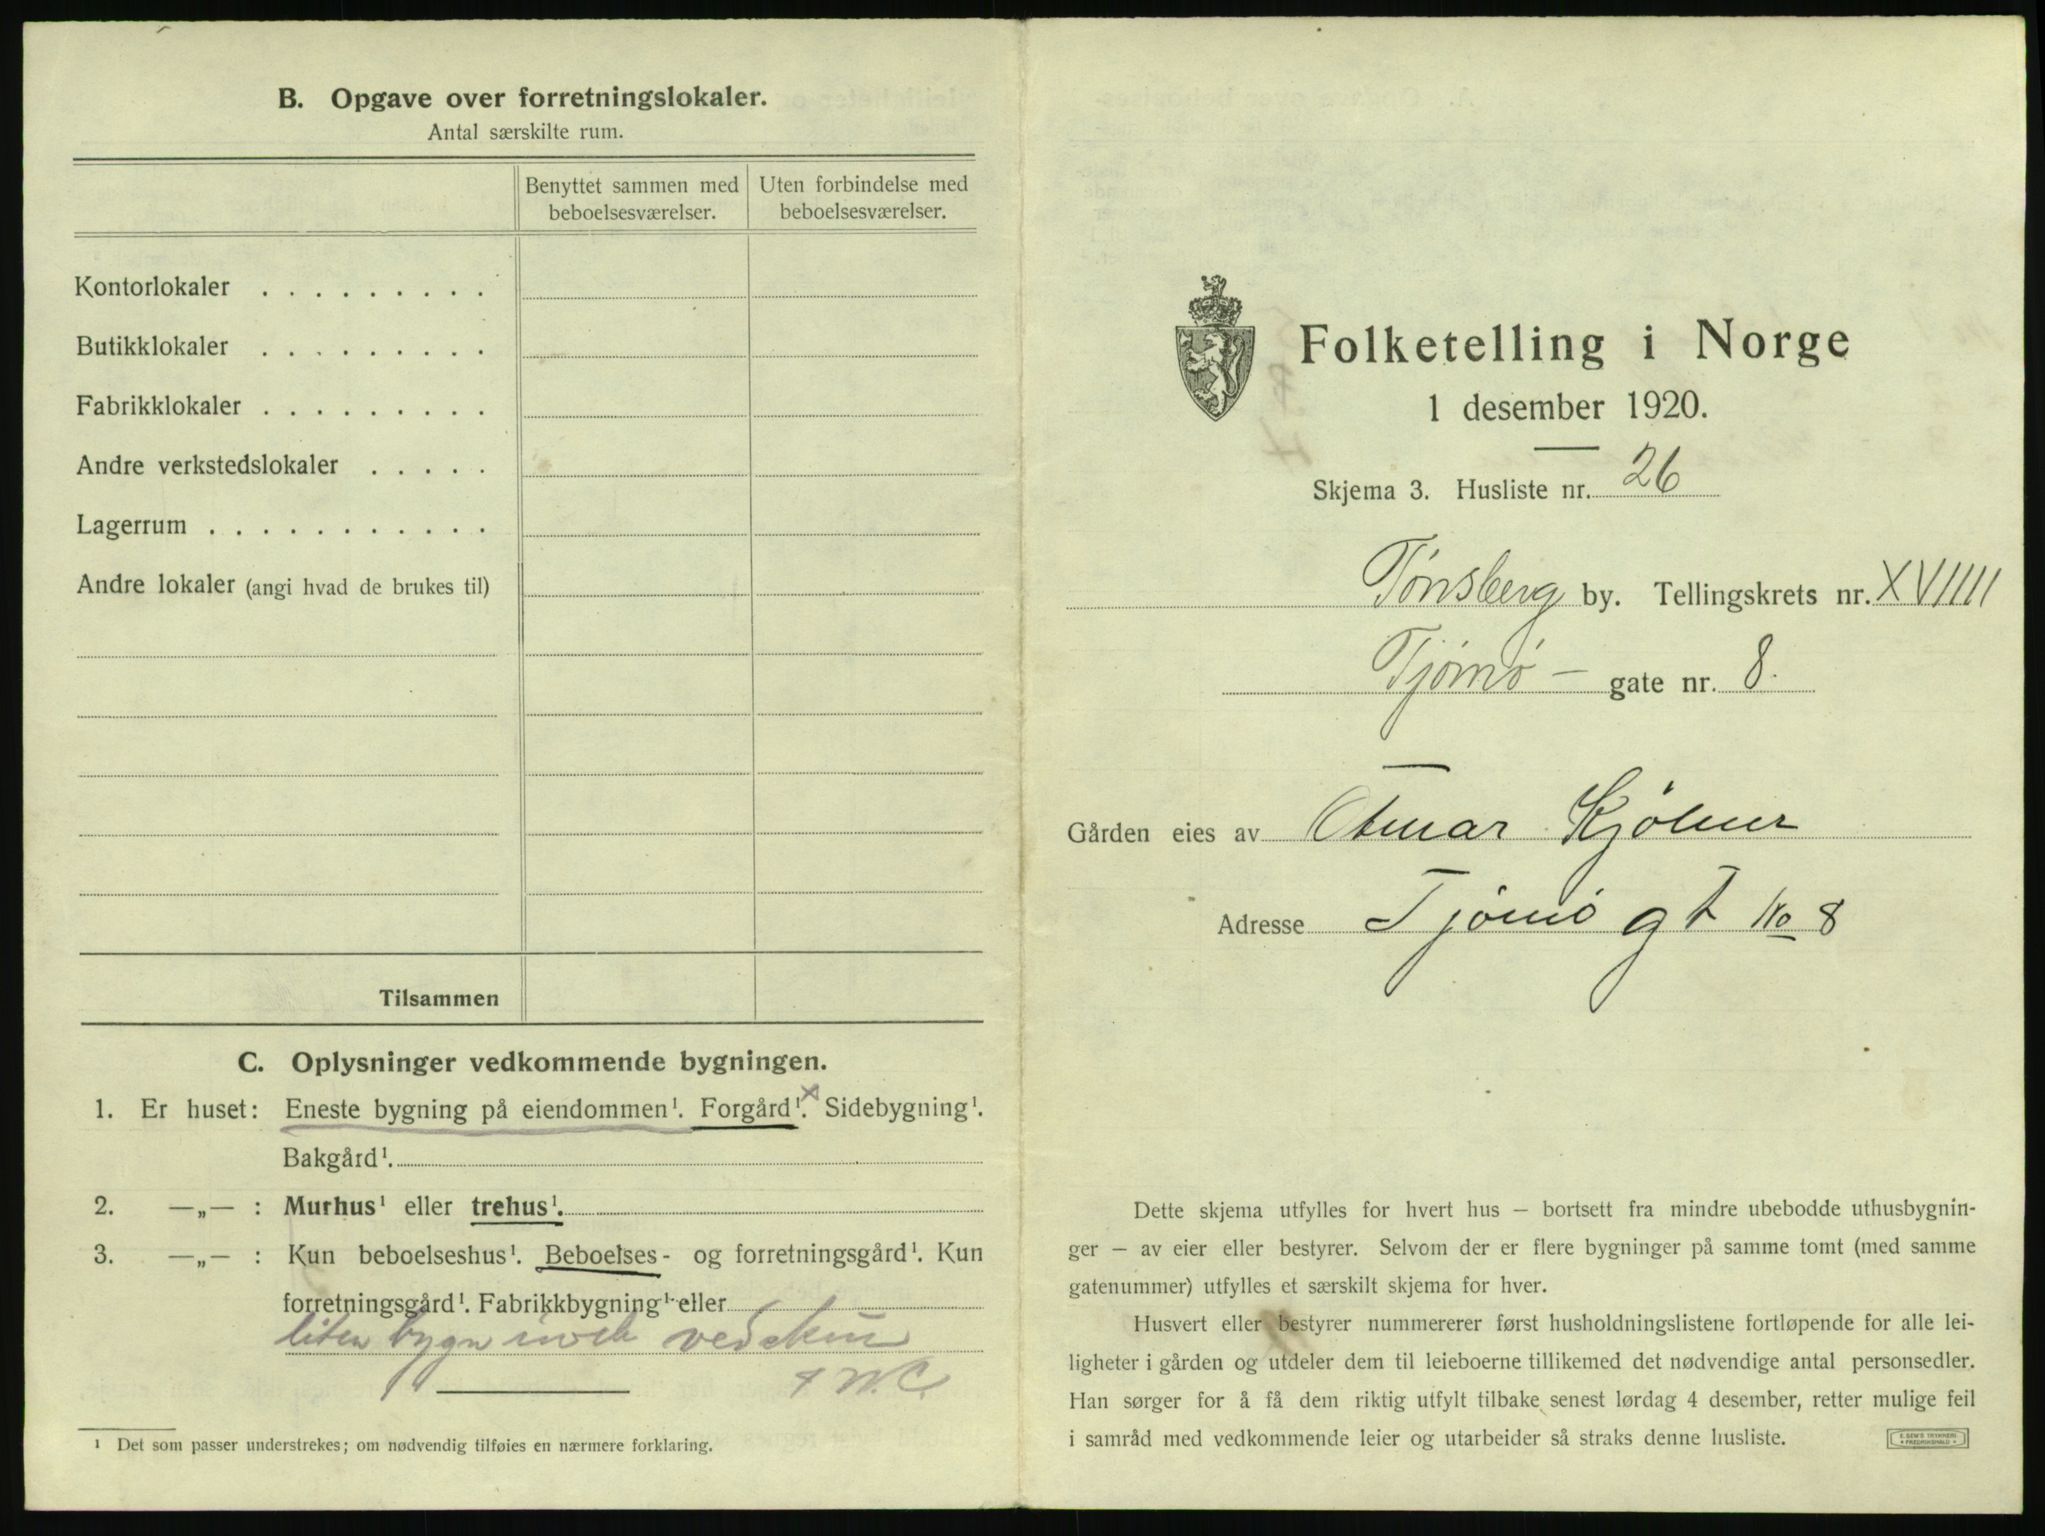 B. Opgave over forretningslokaler.
Antal særskilte rum.
Benyttet sammen med beboelsesværelser.
Uten forbindelse med beboelsesværelser.
Kontorlokaler . . . . . . . . .
Butikklokaler . . . . . . . . .
Fabrikklokaler . . . . . . . . .
Andre verkstedslokaler . . . . .
Lagerrum . . . . . . . . . . . .
Andre lokaler (angi hvad de brukes til)
Tilsammen
C. Oplysninger vedkommende bygningen.
1. Er huset: Eneste bygning på eiendommen¹. Forgård¹.× Sidebygning¹.
Bakgård¹.
2. —„— : Murhus¹ eller trehus¹.
3. —„— : Kun beboelseshus¹. Beboelses- og forretningsgård¹. Kun
forretningsgård¹. Fabrikkbygning¹ eller
liten bygn inde vedskur
+ W.C.
¹ Det som passer understrekes; om nødvendig tilføies en nærmere forklaring.
Folketelling i Norge
1 desember 1920.
Skjema 3. Husliste nr. 26
Tønsberg by. Tellingskrets nr. XVIIII
Tjømø – gate nr. 8.
Gården eies av Otmar Kjølner
Adresse Tjømø gt No 8
Dette skjema utfylles for hvert hus — bortsett fra mindre ubebodde uthusbygnin-
ger — av eier eller bestyrer. Selvom der er flere bygninger på samme tomt (med samme
gatenummer) utfylles et særskilt skjema for hver.
Husvert eller bestyrer nummererer først husholdningslistene fortløpende for alle lei-
ligheter i gården og utdeler dem til leieboerne tillikemed det nødvendige antal personsedler.
Han sørger for å få dem riktig utfylt tilbake senest lørdag 4 desember, retter mulige feil
i samråd med vedkommende leier og utarbeider så straks denne husliste.
E. SEM'S TRYKKERI
• FREDRIKSHALD •